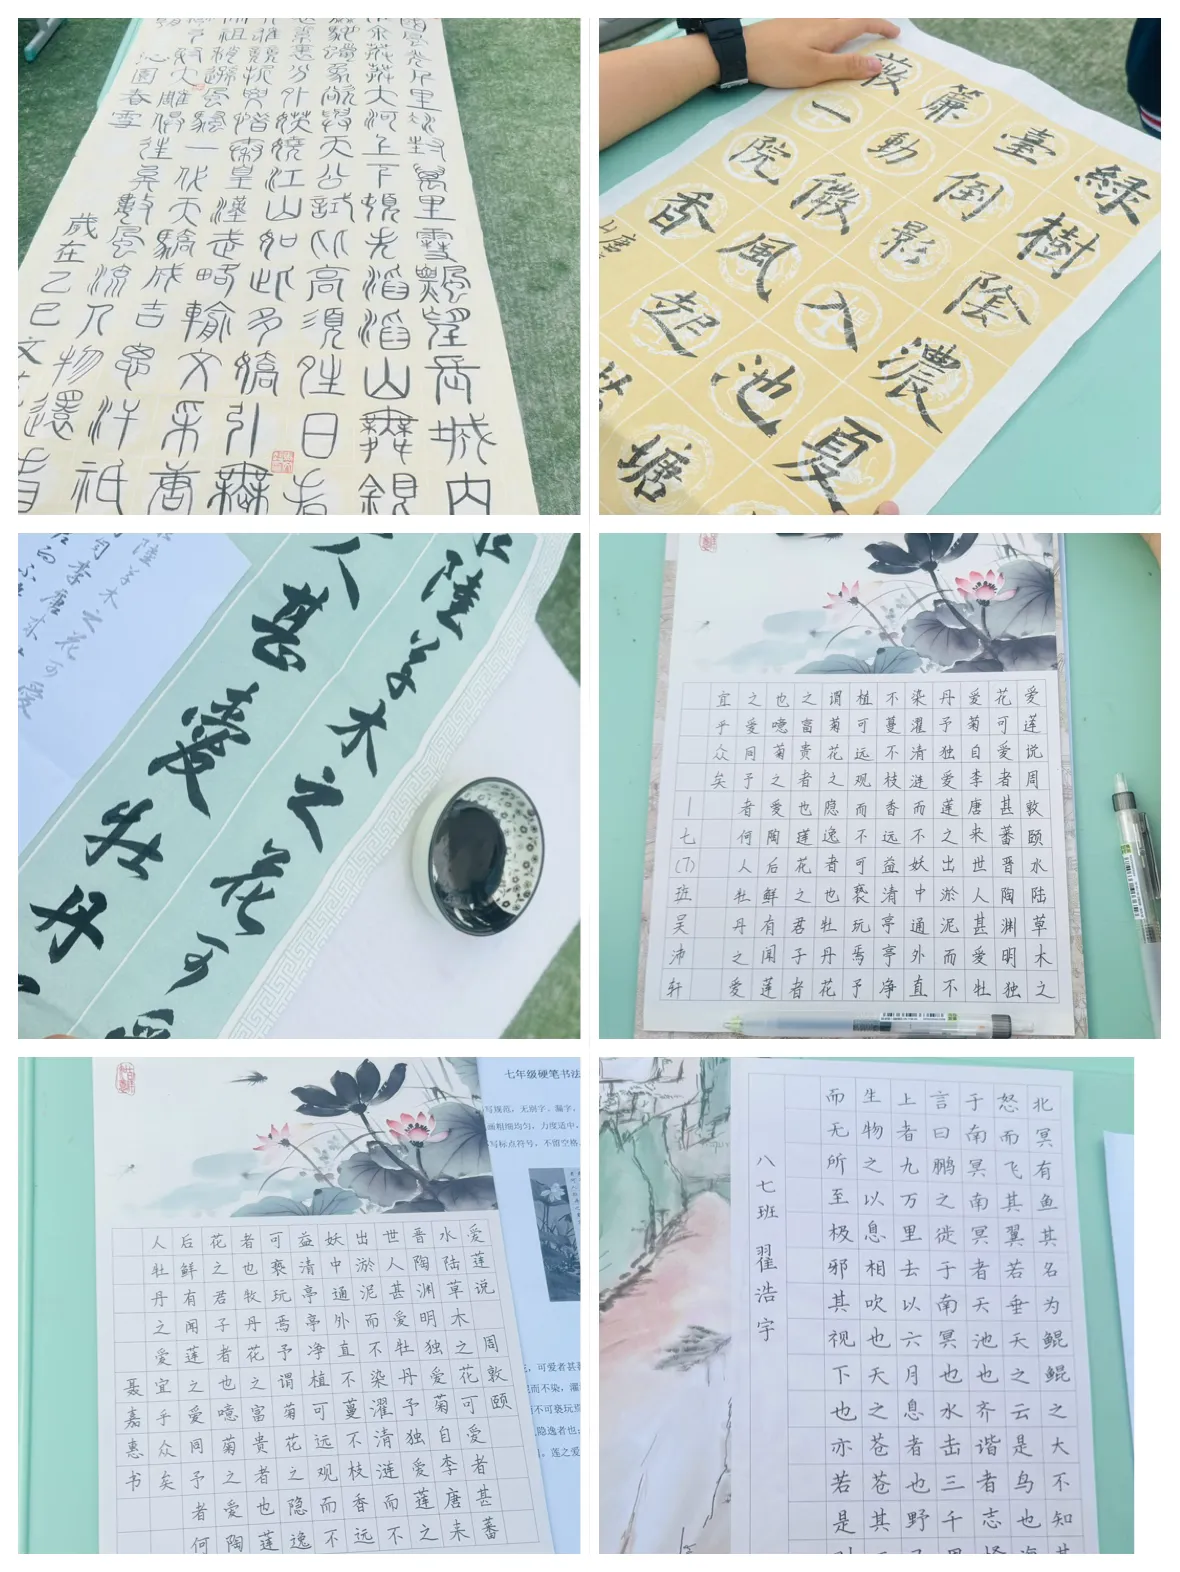 國風光千里冰封萬里雪飄望長城內
余莽莽大河上下頓失滔滔山舞銀
馳蠟象欲與天公試比高須晴日看
素裹分外妖嬈江山如此多嬌引無
雄競折腰惜秦皇漢武略輸文采唐
宋祖稍遜風騷一代天驕成吉思汗祇
射大雕俱往矣數風流人物還
沁園春雪
歲在乙巳文
綠樹陰濃夏
臺倒影入池塘
簾動微風起
薇一院香
陸草木之花可愛
人甚愛牡丹
陸草木之花可愛
李唐來
爱莲说周敦颐水陆草木之
花可爱者甚蕃晋陶渊明独
爱菊自李唐来世人甚爱牡
丹予独爱莲之出淤泥而不
染濯清涟而不妖中通外直
不蔓不枝香远益清亭亭净
植可远观而不可亵玩焉予
谓菊花之隐逸者也牡丹花
之富贵者也莲花之君子者
也噫菊之爱陶后鲜有闻莲
之爱同予者何人牡丹之爱
宜乎众矣
一七(7)班吴沛轩
七年级硬笔书法
写规范,无别字、漏字,
画粗细均匀,力度适中。
写标点符号,不留空格
,可爱者甚
而不染,濯
不可亵玩
隐逸者也;
。莲之爱
爱莲说 周敦颐
水陆草木之花可爱者甚蕃
晋陶渊明独爱菊自李唐来
世人甚爱牡丹予独爱莲之
出淤泥而不染濯清涟而不
妖中通外直不蔓不枝香远
益清亭亭净植可远观而不
可亵玩焉予谓菊花之隐逸
者也牧丹花之富贵者也莲
花之君子者也噫菊之爱陶
后鲜有闻莲之爱同予者何
人牡丹之爱宜乎众矣
聂嘉惠书
北冥有鱼其名为鲲鲲之大不知其
怒而飞其翼若垂天之云是鸟也海
于南冥南冥者天池也齐谐者志怪
言曰鹏之徙于南冥也水击三千里
上者九万里去以六月息者也野
生物之以息相吹也天之苍苍其正
而无所至极邪其视下也亦若是则
八七班 翟浩宇